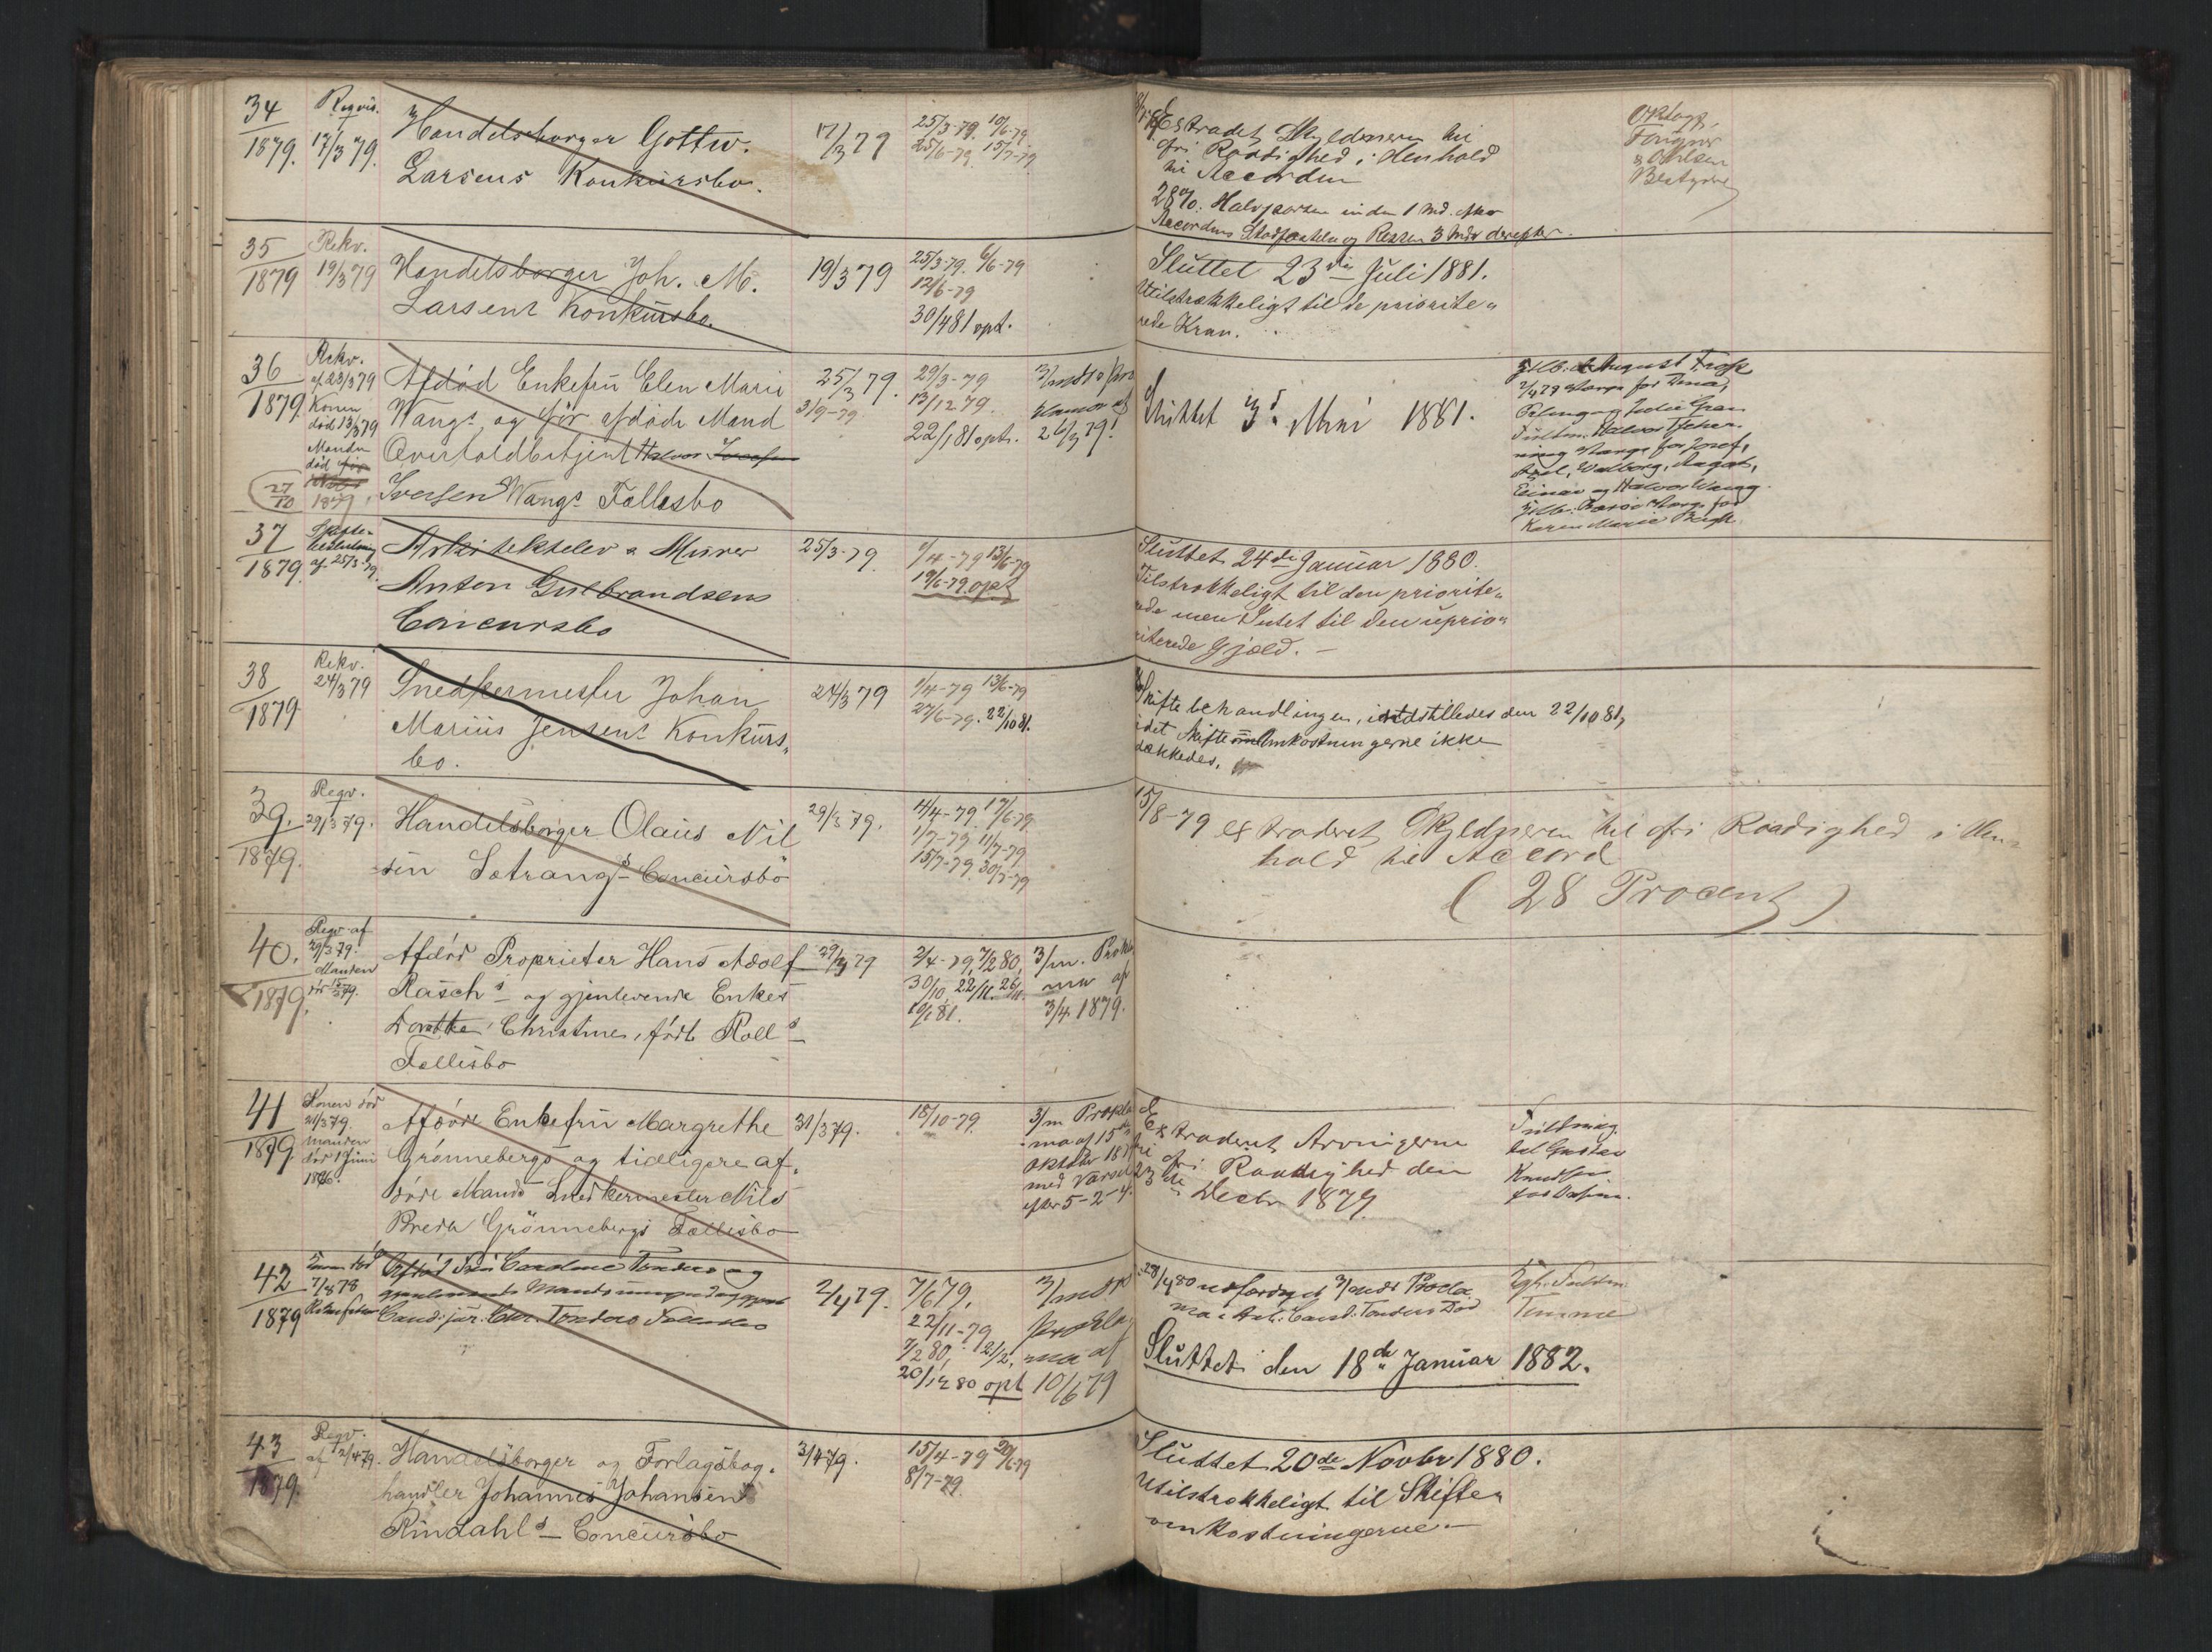 34
1879.
Reqvis.
17/3 79.
Handelsborger Gottw.
Larsens Konkursbo.
17/3 79
25/3-79. 10/6-79
25/6-79. 15/7-79
Extradet Skyldneren til
fri Raadighed i Henhold
til Accorden
28%. Halvparten inden 1 Md. efter
Accordens Stadfæstelse og Resten 3 Mdr derefter.
35
1879
Rekv.
19/3 79
Handelsborger Joh. M.
Larsens Konkursbo.
19/3 79
25/3-79. 6/6-79
12/6-79
30/4 81 opt.
Sluttet 23de Juli 1881.
Utilstrækkeligt til de priorite„
rede Krav.
36
1879.
Rekv.
af 23/3 79
Konen
død 13/3 79
Manden
død
27/10
1879
Afdød Enkefru Elen Marie
Wangs og før afdøde Mand
Overtoldbetjent Halvor
Iversen Wangs Fællesbo
25/3 79.
3/9-79.
29/3-79
13/12 79.
22/1 81 opt.
3/mdts Pro
klama af
26/3 79.
Sluttet 3d Mai 1881.
Tilb. August Frøk
Halvor
Einar og Halvor Wang.
Karen Marie
37
1879.
Skifte-
beslutning
af 25/3-79.
Arkitektelev & Murer
Anton Gulbrandsens
Concursbo
25/3-79.
1/4-79 13/6-79
19/6-79 opt
Sluttet 24de Januar 1880.
Tilstrækkeligt til den priorite„
rede men Intet til den uprio„
riterede Gjæld. —
38
1879
Rekv.
24/3 79
Snedkermester Johan
Marius Jensens Konkurs„
bo.
24/3 79
1/4-79 13/6-79
27/6-79. 22/10 81.
Skiftebehandlingen indstilledes den 22/10 81,
idet Skifteomkostningerne ikke
dækkedes.
39.
1879.
Reqv.
29/3 79.
Handelsborger Olaus Nil
sen Sætrangs Concursbo
29/3 79.
4/4-79. 17/6-79
1/7-79. 11/7-79
15/7-79. 30/7-79
15/8-79 extraderet Skyldneren til fri Raadighed i Hen„
hold til Accord
( 28 Procent )
40.
1879.
Reqv. af
29/3 79.
Manden
Afdød Proprietær Hans Adolf
Raschs og gjenlevende Enkes
Dorothea Christine, født Rolls
Fællesbo
29/3 79
2/4-79, 7/2 80,
30/10, 22/11. 26/11.
19/1 81.
3/m. Prokla
ma af
3/4 1879.
41
1879
Konen død
21/3 79.
Manden
død 1 Juni
Afdøde Enkefru Margrethe
Grønnebergs og tidligere af„
døde Mands Snedkermester Nils
Breda Grønnebergs Fællesbo
31/3 79.
18/10-79.
3/m Prokla
ma af 15de
Oktober 1879
med Varsel
efter 5-2-4.
Extraderet Arvingerne
til fri Raadighed den
23de Decbr 1879
Fuldmæg.
til Gustav
Knudsen
42
1879
7/4 78
Afdød Fru Caroline Tønders og
gjenlevende Mands
Cand. jur. Chr. Tønders Fællesbo
2/4 79.
7/6 79.
22/11-79
7/2 80, 21/2,
20/12 80 opt
3/mdts
Prokla
ma af
10/6 79
28/4 80 udfærdiget 3/mdts Procla
ma i Anl. Cand. Tønders Død
Sluttet den 18de Januar 1882.
43
1879.
Reqv.
af 2/4 79.
Handelsborger og Forlagsbog„
handler Johannes Johansen
Rindahls Concursbo
3/4 79.
15/4-79 20/6-79
8/7-79.
Sluttet 20de Novbr 1880.
Utilstrækkeligt til Skifte„
omkostningerne. —